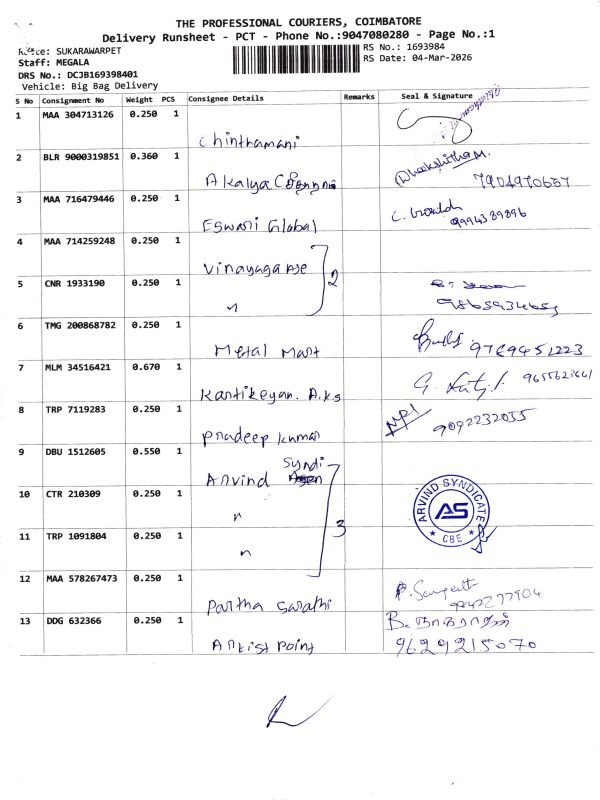 THE PROFESSIONAL COURIERS, COIMBATORE
Delivery Runsheet - PCT - Phone No.:9047080280 - Page No.:1
SUKARAWARPET
RS No.: 1693984
Staff: MEGALA
RS Date: 04-Mar-2026
DRS No.: DCJB169398401
Vehicle: Big Bag Delivery
S No Consignment No Weight PCS Consignee Details Remarks Seal & Signature
1 MAA 304713126 0.250 1
Chinthamani
2 BLR 9000319851 0.360 1
Akalya
7904970657
3 MAA 716479446 0.250 1
Eswari Global
9994389896
4 MAA 714259248 0.250 1
Vinayaga
2
5 CNR 1933190 0.250 1
"
6 TMG 200868782 0.250 1
Metal Mart
9789451223
7 MLM 34516421 0.670 1
Kartikeyan. A.ks
8 TRP 7119283 0.250 1
Pradeep Kumar
9092232055
9 DBU 1512605 0.550 1
Arvind Syndi
10 CTR 210309 0.250 1
"
3
ARVIND SYNDICATE
AS
CBE
11 TRP 1091804 0.250 1
"
12 MAA 578267473 0.250 1
Partha Sarathi
13 DDG 632366 0.250 1
Artist Point
B. நாகராஜன்
9629215070